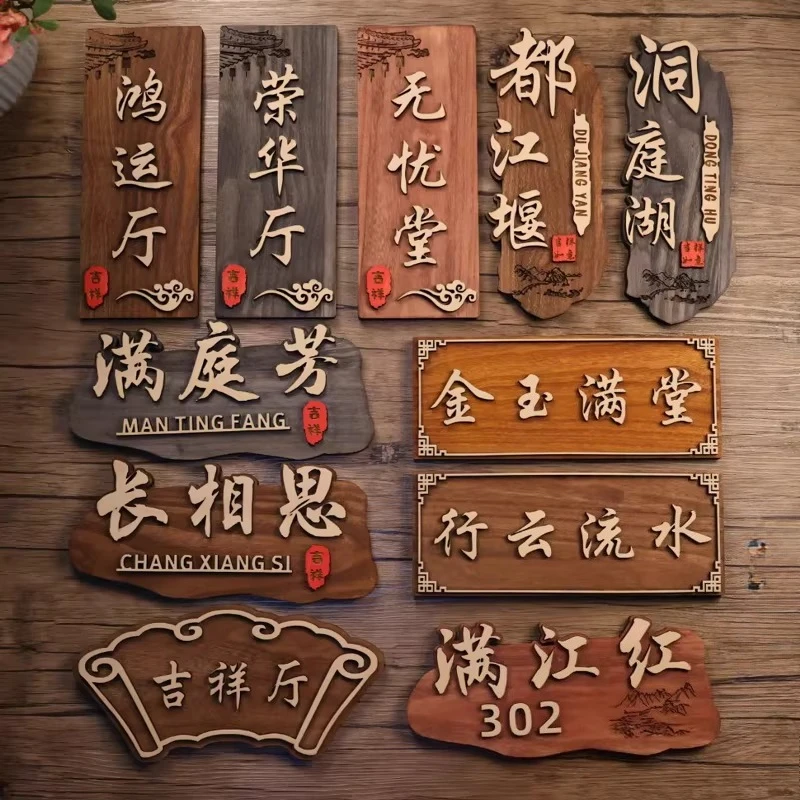 鸿运厅
吉祥
荣华厅
吉祥
无忧堂
吉祥
都江堰
DU JIANG YAN
吉祥
如意
洞庭湖
DONG TING HU
吉祥
如意
满庭芳
MAN TING FANG
吉祥
金玉满堂
长相思
CHANG XIANG SI
吉祥
行云流水
吉祥厅
满江红
302